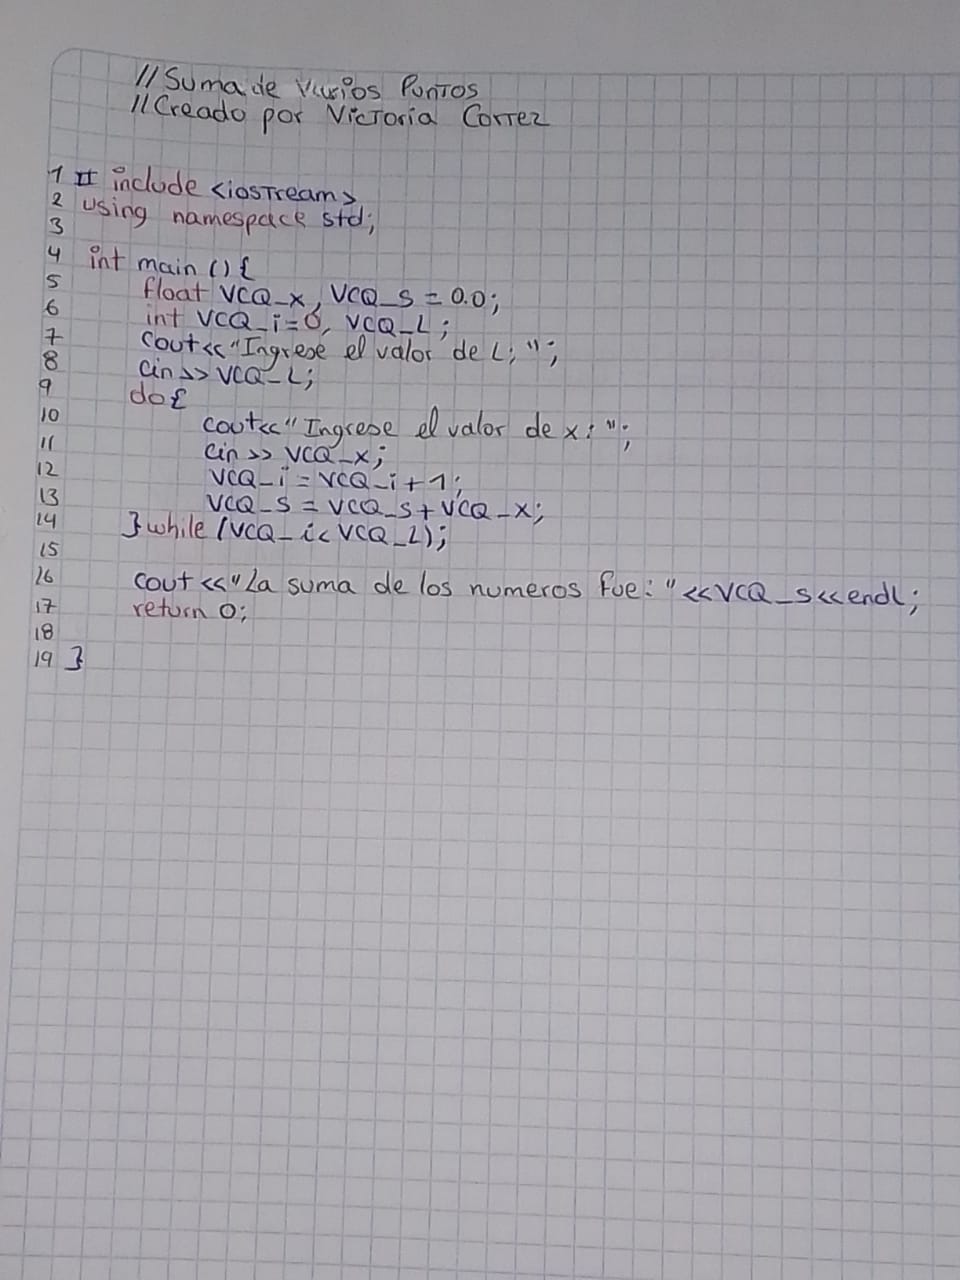 //Suma de Varios Puntos
//Creado por Victoria Correz
1 # include <iostream>
2 using namespace std;
3
4 int main () {
5 float VCQ_x, VCQ_s = 0.0;
6 int VCQ_i=0, VCQ_L;
7 cout<<"Ingrese el valor de L; ";
8 cin>> VCQ_L;
9 do{
10 cout<<"Ingrese el valor de x: ";
11 cin >> VCQ_x;
12 VCQ_i = VCQ_i+1;
13 VCQ_s = VCQ_s + VCQ_x;
14 } while (VCQ_i< VCQ_L);
15
16 cout <<"La suma de los numeros fue: "<<VCQ_s<<endl;
17 return 0;
18
19 }